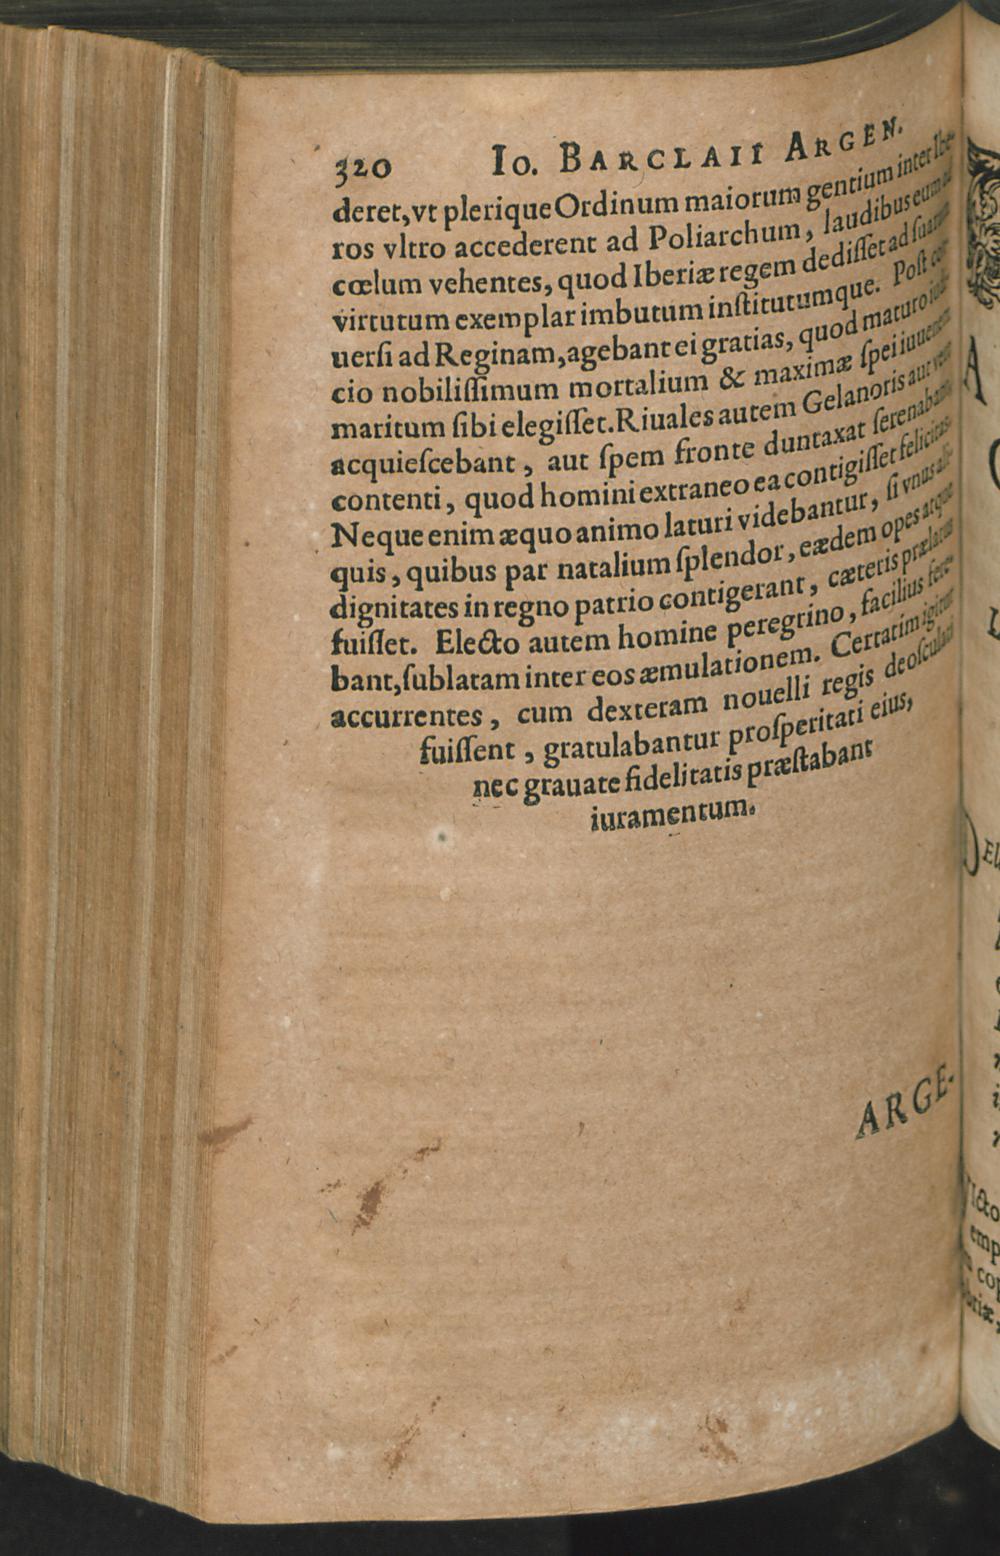 320 IO. BARCLAII ARGEN.
deret,vt plerique Ordinum maiorum gentium inter Ibe-
ros vltro accederent ad Poliarchum, laudibus eum ad
cœlum vehentes, quod Iberiæ regem dediſſet ad ſuarum
virtutum exemplar imbutum inſtitutumque. Poſt con-
uerſi ad Reginam,agebant ei gratias, quod maturo iudi-
cio nobiliſſimum mortalium & maximæ ſpei iuuenem
maritum ſibi elegiſſet.Riuales autem Gelanoris aut vero
acquieſcebant, aut ſpem fronte duntaxat ſerenabant
contenti, quod homini extraneo ea contigiſſet felicitas.
Neque enim æquo animo laturi videbantur, ſi vnus ali-
quis, quibus par natalium ſplendor, eædem opes atque
dignitates in regno patrio contigerant, cæteris prælatus
fuiſſet. Electo autem homine peregrino, facilius fere-
bant,ſublatam inter eos æmulationem. Certatim igitur
accurrentes, cum dexteram nouelli regis deoſculati
fuiſſent, gratulabantur proſperitati eius,
nec grauate fidelitatis præſtabant
iuramentum.
ARGE-